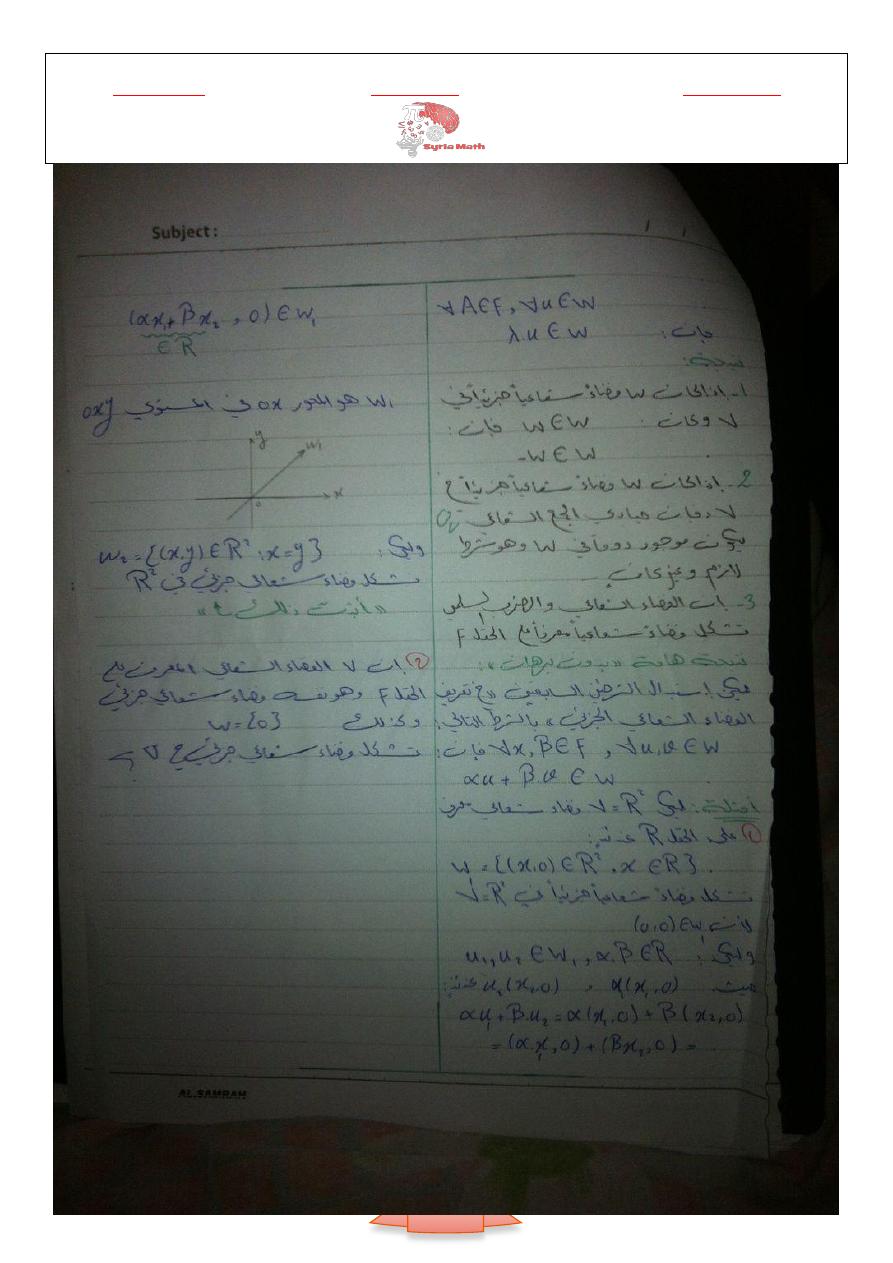 Syria Math
Subject:
∀λ∈F, ∀u∈W
فإن: λ.u ∈ W
نتيجة:
1- إذا كانت W فضاءً شعاعياً جزئياً في
V وكانت: W∈W فإن:
-W∈W
2- إذا كانت W فضاءً شعاعياً جزئياً في
V فإن حيادي الجمع الشعاعي O_V
يكون موجود دوماً في W وهو شرط
لازم وغير كافٍ.
3- إن الفضاء الشعاعي والضرب السلمي
تشكل فضاءً شعاعياً معرفاً على الحقل F
نتيجة هامة «بدون برهان»:
يمكن استبدال الشرطين السابقين «في تعريف
الفضاء الشعاعي الجزئي» بالشرط التالي:
∀α,β∈F , ∀u,v∈W فإن:
αu + β.v ∈ W
أمثلة: ليكن V=R² فضاء شعاعي معرف
① على الحقل R عندئذٍ:
W₁={(x,0)∈R², x∈R}
تشكل فضاءً شعاعياً جزئياً في V=R²
لأن (0,0)∈W₁
وليكن: u₁,u₂∈W₁, α,β∈R
حيث u₁(x₁,0) , u₂(x₂,0) عندئذٍ:
αu₁+β.u₂=α(x₁,0)+β(x₂,0)
=(αx₁,0)+(βx₂,0)=
(αx₁+βx₂,0)∈W₁
∈R
W₁ هو المحور ox في المستوي oxy
y
W₁
x
o
وليكن: W₂={(x,y)∈R²:x=y}
تشكل فضاء شعاعي جزئي في R²
«أثبت ذلك t»
② إن V الفضاء الشعاعي المعرف على
الحقل F وهو نفسه فضاء شعاعي جزئي
وكذلك W={0}
تشكل فضاء شعاعي جزئي في V
AL SAMRAM